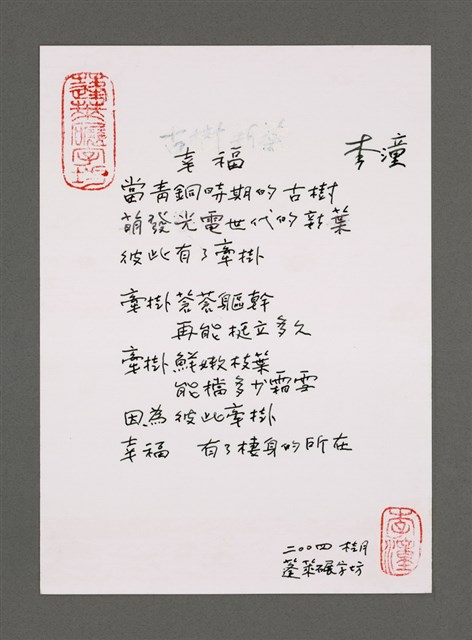 蓬萊碾字坊
幸福 李潼
當青銅時期的古樹
萌發光電世代的新葉
彼此有了牽掛
牽掛蒼蒼軀幹
再能挺立多久
牽掛鮮嫩枝葉
能擋多少霜雪
因為彼此牽掛
幸福 有了棲身的所在
二〇〇四 桂月
蓬萊碾字坊
李潼